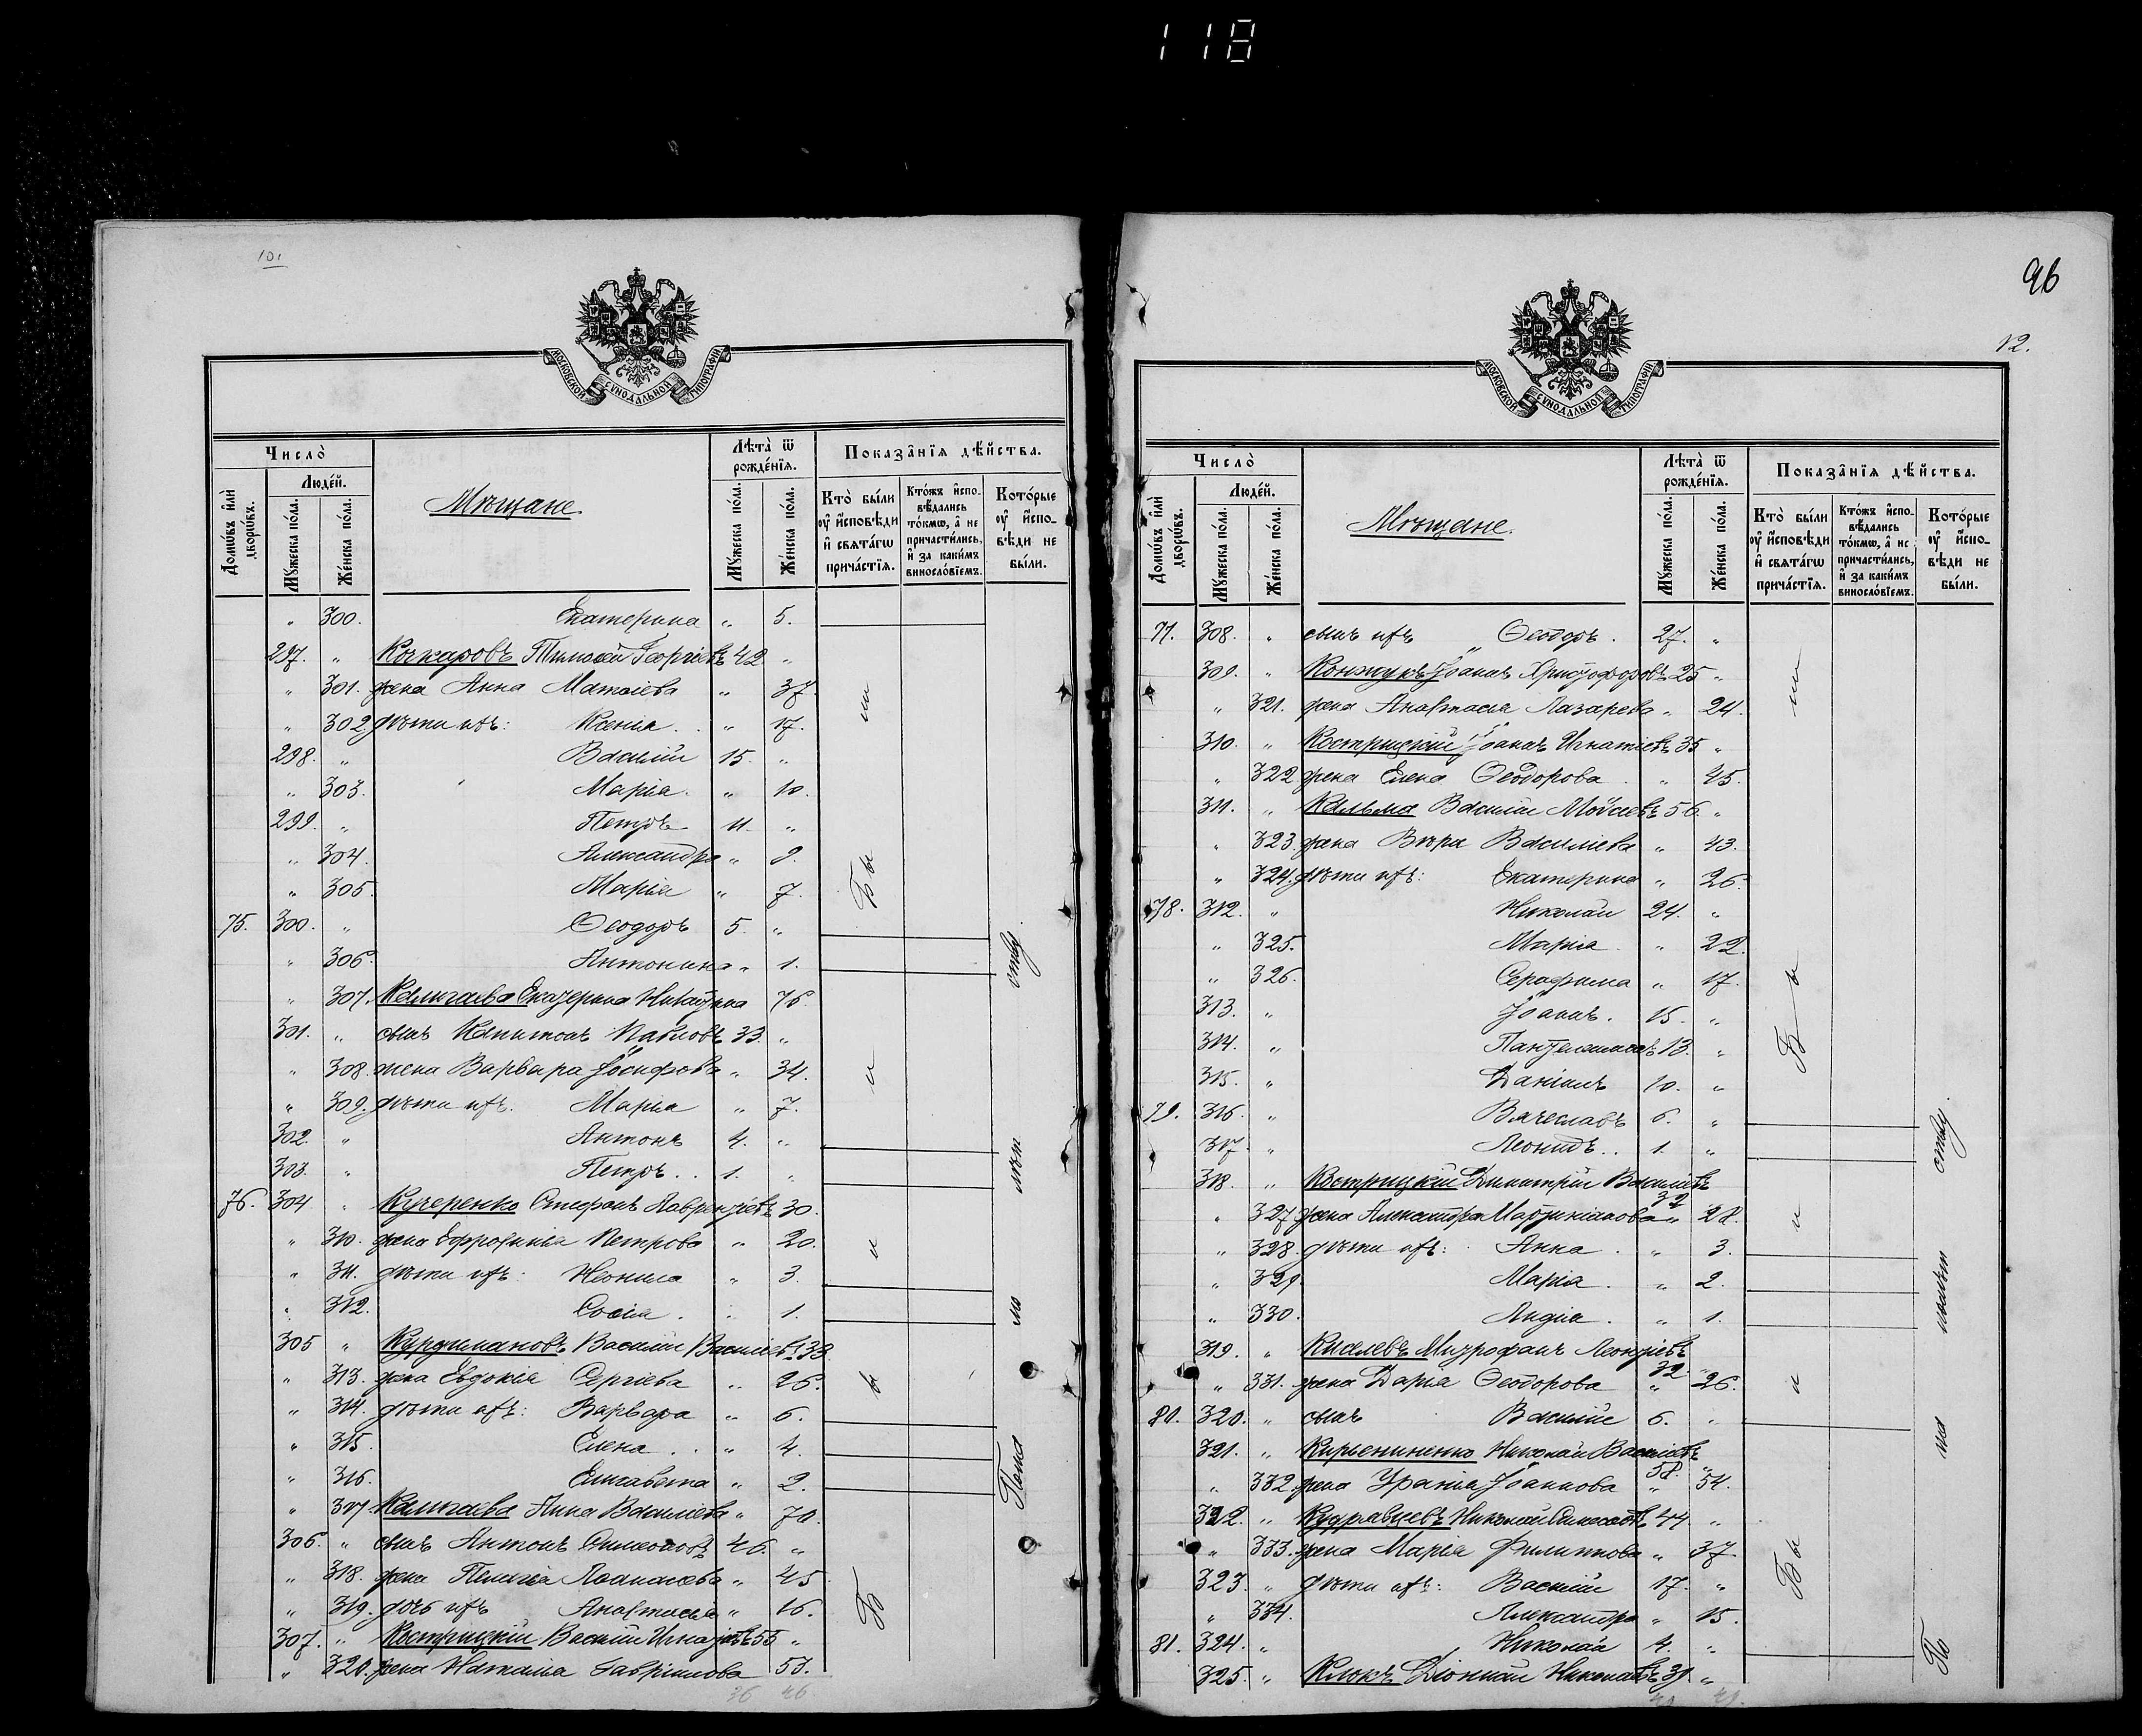 118
101
МОСКОВСКОЙ СѴНОДАЛЬНОЙ ТИПОГРАФІИ
Число̀
Люде́й.
Домѡ́въ и҆лѝ дворѡ́въ.
Мꙋ́жеска по́ла.
Же́нска по́ла.
Мѣщане.
Лѣта̀ ѿ рожде́нїѧ.
Мꙋ́жеска по́ла.
Же́нска по́ла.
Показа̑нїѧ дѣ́йства.
Кто̀ бы́ли ᲂу҆ и҆́сповѣди и҆ свѧта́гѡ прича́стїѧ.
Кто́жъ и҆спо-вѣ́дались то́кмѡ, а҆ не причасти́лись, и҆ за каки́мъ винословїемъ.
Кото́рые ᲂу҆ и҆́спо-вѣди не бы́ли.
„ 300. Екатерина „ 5.
297. „ Кочкаровъ Тимоѳей Георгіевъ 42 „
„ 301. жена Анна Матѳіева „ 37.
„ 302. дѣти ихъ: Ксенія . . „ 17.
298. „ Василій 15. „
„ 303. Марія . „ 10.
299. „ Петръ 11. „
„ 304. Александра „ 9.
„ 305. Марія „ 7.
75. 300. „ Ѳеодоръ 5. „
„ 306. Антонина „ 1.
„ 307. Екатерина 76.
301. „ сынъ Капитонъ Павловъ 33. „
„ 308. жена Варвара Іосифова „ 34.
„ 309. дѣти ихъ. Марія „ 7.
302. „ Антонъ 4. „
303. „ Петръ . . 1. „
76. 304 „ Кучеренко Стефанъ Лаврентіевъ 30.
„ 310. жена Евфросинія Петрова „ 20.
„ 311. дѣти ихъ: Неонила „ 3.
„ 312. Софія . „ 1.
305 „ Курдимановъ Василій Василіевъ 33.
„ 313. жена Евдокія Сергіева „ 26.
„ 314. дѣти ихъ: Варвара „ 6.
„ 315. Елена . . „ 4.
„ 316. Елисавета „ 2.
„ 317. Анна Василіева „ 70.
306. „ сынъ Антонъ Симеоновъ 46. „
„ 318. жена Пелагія Аѳанасіева „ 45
„ 319. дочь ихъ Анастасія „ 16.
307. „ Кострицкій Василій Игнатіевъ 55 „
„ 320. жена Наталія Гавріилова 53.
36 46
Бы ли
Бы ли
По мало лѣт ству.
96
12.
МОСКОВСКОЙ СѴНОДАЛЬНОЙ ТИПОГРАФІИ
Число̀
Люде́й.
Домѡ́въ и҆лѝ дворѡ́въ.
Мꙋ́жеска по́ла.
Же́нска по́ла.
Мѣщане.
Лѣта̀ ѿ рожде́нїѧ.
Мꙋ́жеска по́ла.
Же́нска по́ла.
Показа̑нїѧ дѣ́йства.
Кто̀ бы́ли ᲂу҆ и҆́сповѣди и҆ свѧта́гѡ прича́стїѧ.
Кто́жъ и҆спо-вѣ́дались то́кмѡ, а҆ не причасти́лись, и҆ за каки́мъ винословїемъ.
Кото́рые ᲂу҆ и҆́спо-вѣди не бы́ли.
77. 308. „ сынъ ихъ Ѳеодоръ . 27. „
309. „ Іоаннъ Христофоровъ 25 „
„ 321. жена Анастасія Лазарева „ 24.
310. „ Кострицкій Іоаннъ Игнатіевъ 35 „
„ 322 жена Елена Ѳеодорова . „ 45.
311. „ Кальма Василій Моѵсеевъ 56. „
„ 323. жена Вѣра Василіева „ 43.
„ 324. дѣти ихъ: Екатерина „ 26.
78. 312. „ Николай 24. „
„ 325. Марія . „ 22.
„ 326. Серафима „ 17.
313. „ Іоаннъ . 15. „
314. „ Пантелеимонъ 13. „
315. „ Даніилъ 10. „
79. 316. „ Вячеславъ 6. „
317. „ Леонидъ . . 1. „
318. „ Кострицкій Димитрій Василіевъ 32
„ 327 жена Александра „ 28.
„ 328. дѣти ихъ: Анна . „ 3.
„ 329. Марія . „ 2.
„ 330. Лидія . „ 1.
319. „ Киселевъ Митрофанъ Леонтіевъ 32 „
„ 331. жена Дарія Ѳеодорова „ 26.
80. 320. „ сынъ Василій 6. „
321. „ Николай Василіевъ 58. „
„ 332. жена Іоаннова „ 54.
322. „ Кудрявцевъ Николай Симеоновъ 44 „
„ 333. жена Марія Филиппова „ 37
323. „ дѣти ихъ: Василій 17. „
„ 334. Александра „ 15.
81. 324. „ Николай 4. „
325. „ Клокъ Діонисій Николаевъ 39. „
Бы ли
Бы ли
По мало лѣт ству.